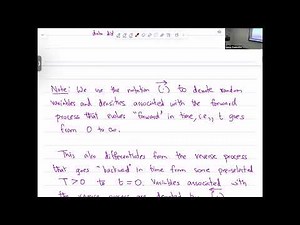 data dist
Note: We use the notation (·) to denote random
variables and densities associated with the forward
process that evolves "forward" in time, i.e., t goes
from 0 to ∞.
This also differentiates from the reverse process
that goes "backward" in time from some pre-selected
T>0 to t=0. Variables associated with
the reverse process are denoted by (·)